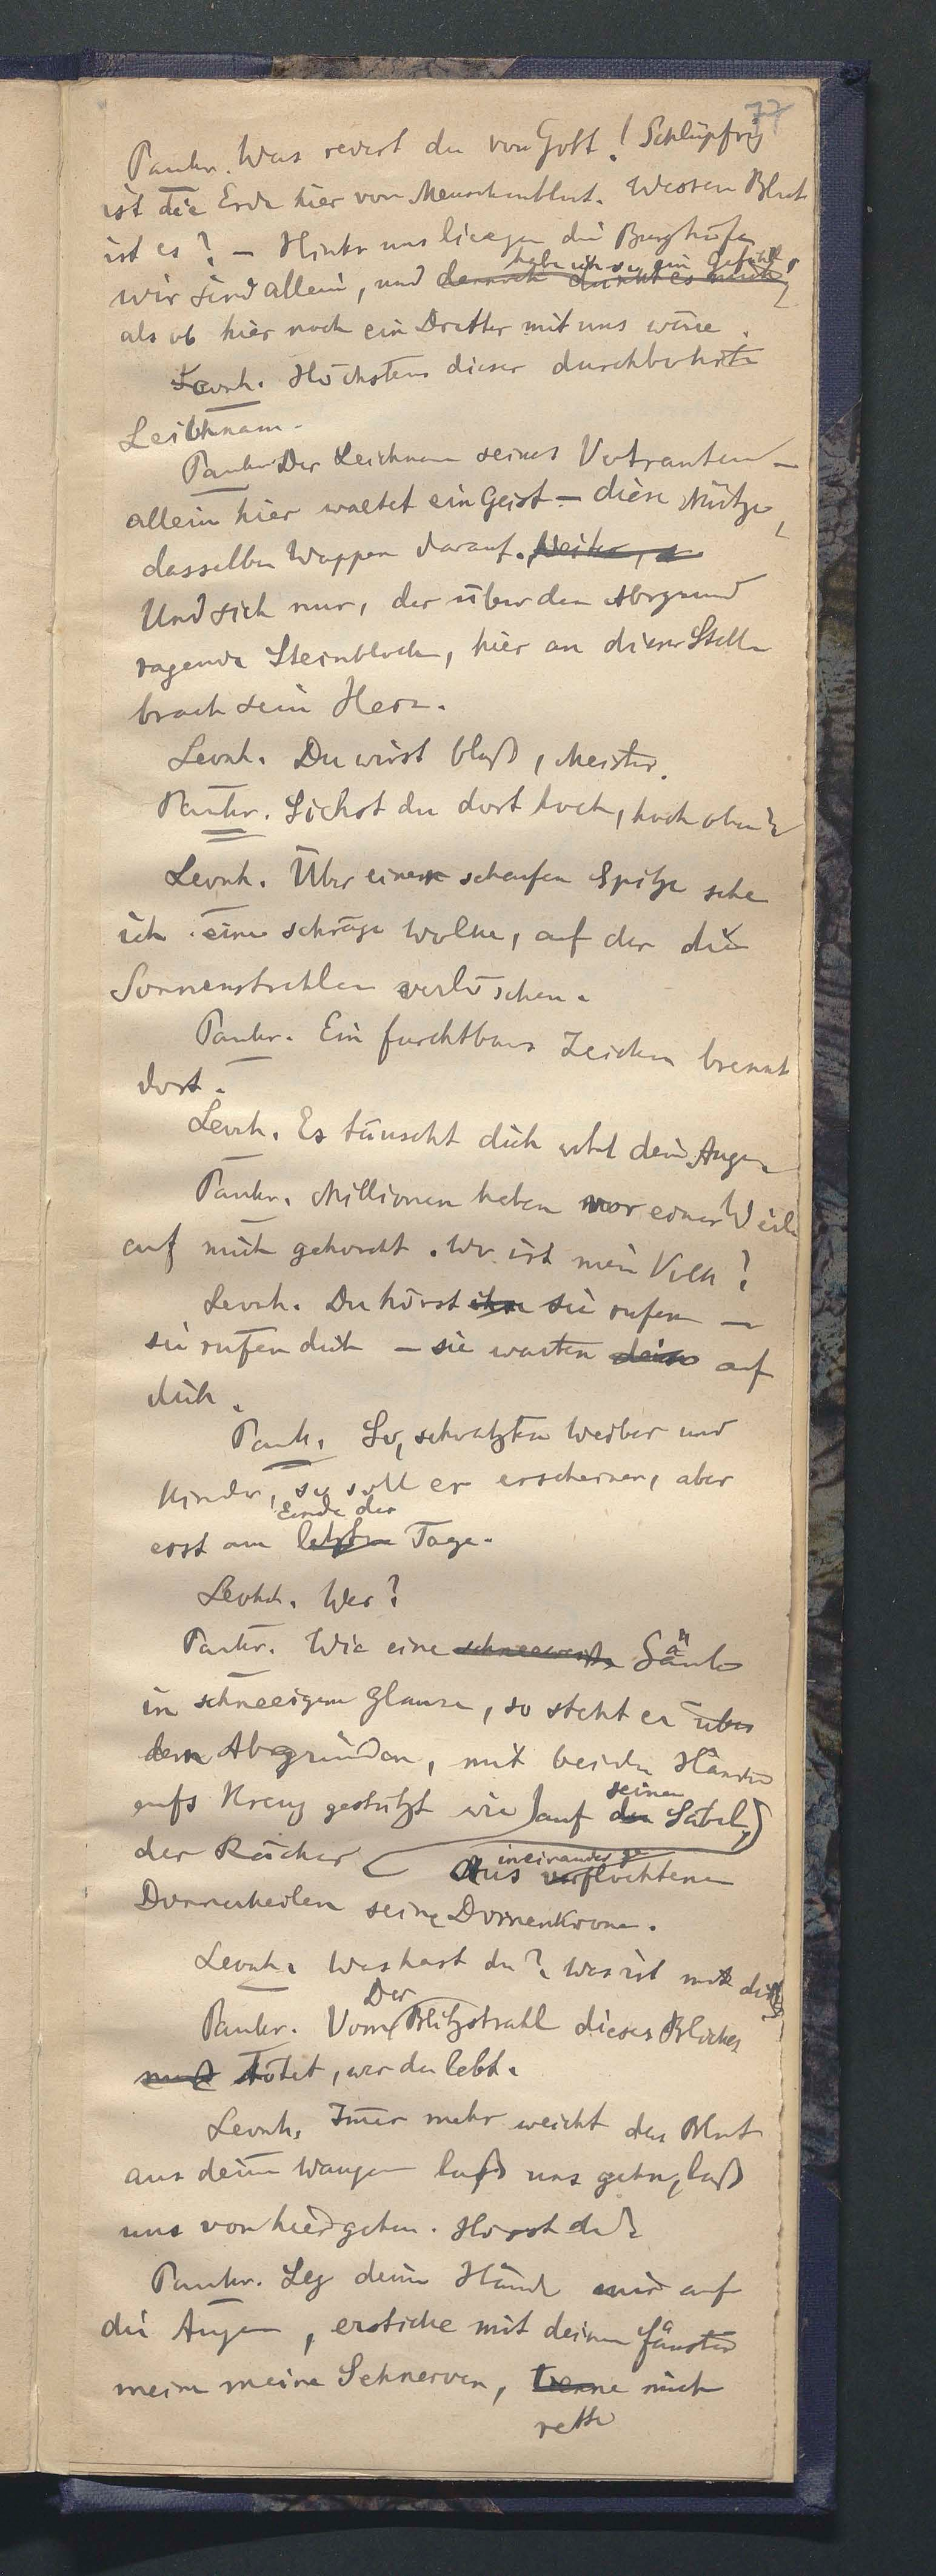 77
Pankr. Was redest du von Gott! Schlüpfrig
ist die Erde hier von Menschenblut. Wessen Blut
ist es? – Hinter uns liegen die Burghöfe,
habe ich so ein Gefühl,
wir sind allein, und dennoch dünkt es mich,
als ob hier noch ein Dritter mit uns wäre.
Leonh. Höchstens dieser durchbohrte
Leichnam.
Pankr. Der Leichnam seines Vertrauten –
allein hier waltet ein Geist – diese Mütze,
dasselbe Wappen darauf. Weiter, s
Und sieh nur, der über den Abgrund
ragende Steinblock, hier an dieser Stelle
brach sein Herz.
Leonh. Du wirst blaß, Meister.
Pankr. Siehst du dort hoch, hoch oben?
Leonh. Über einer scharfen Spitze sehe
ich eine schräge Wolke, auf der die
Sonnenstrahlen verlöschen.
Pankr. Ein furchtbares Zeichen brennt
dort.
Leonh. Es täuscht dich wohl dein Auge.
Pankr. Millionen haben vor einer Weile
auf mich gehorcht. Wo ist mein Volk?
Leonh. Du hörst ihr sie rufen –
sie rufen dich – sie warten dein auf
dich.
Pank. So, schwatzten Weiber und
Kinder, so soll er erscheinen, aber
Ende der
erst am letzten Tage.
Leonh. Wer?
Pankr. Wie eine schneeweiße Säule
in schneeigem Glanze, so steht er über
den Abgründen, mit beiden Händen
seinen
aufs Kreuz gestützt wie auf den Säbel,
der Rächer
ineinander ge
Aus verflochtenen
Donnerkeilen seine Dornenkrone.
Leonh. Was hast du? Was ist mit dir?
Der
Pankr. Vom Blitzstrahl dieses Blickes
muß tötet, wer da lebt.
Leonh. Immer mehr weicht das Blut
aus deinen Wangen laß uns gehn, laß
uns von hier gehen. Hörst du?
Pankr. Leg deine Hände mir auf
die Augen, ersticke mit deinen Fäusten
meine meine Sehnerven, trenne mich
rette